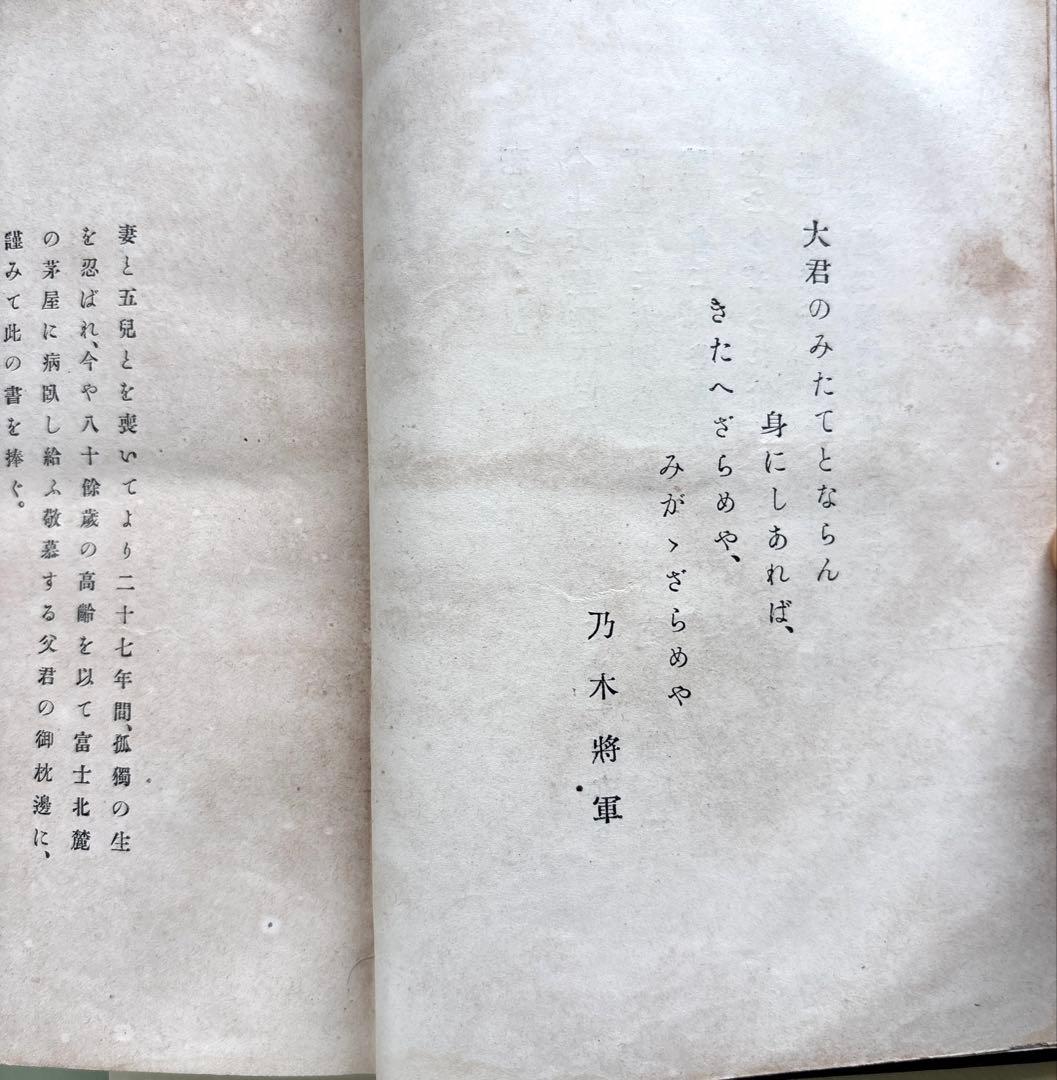 大君のみたてとならん
身にしあれば、
きたへざらめや、
みがゝざらめや
乃木將軍
妻と五兒とを喪いてより二十七年間、孤獨の生
を忍ばれ、今や八十餘歳の高齡を以て富士北麓
の茅屋に病臥し給ふ敬慕する父君の御枕邊に、
謹みて此の書を捧ぐ。